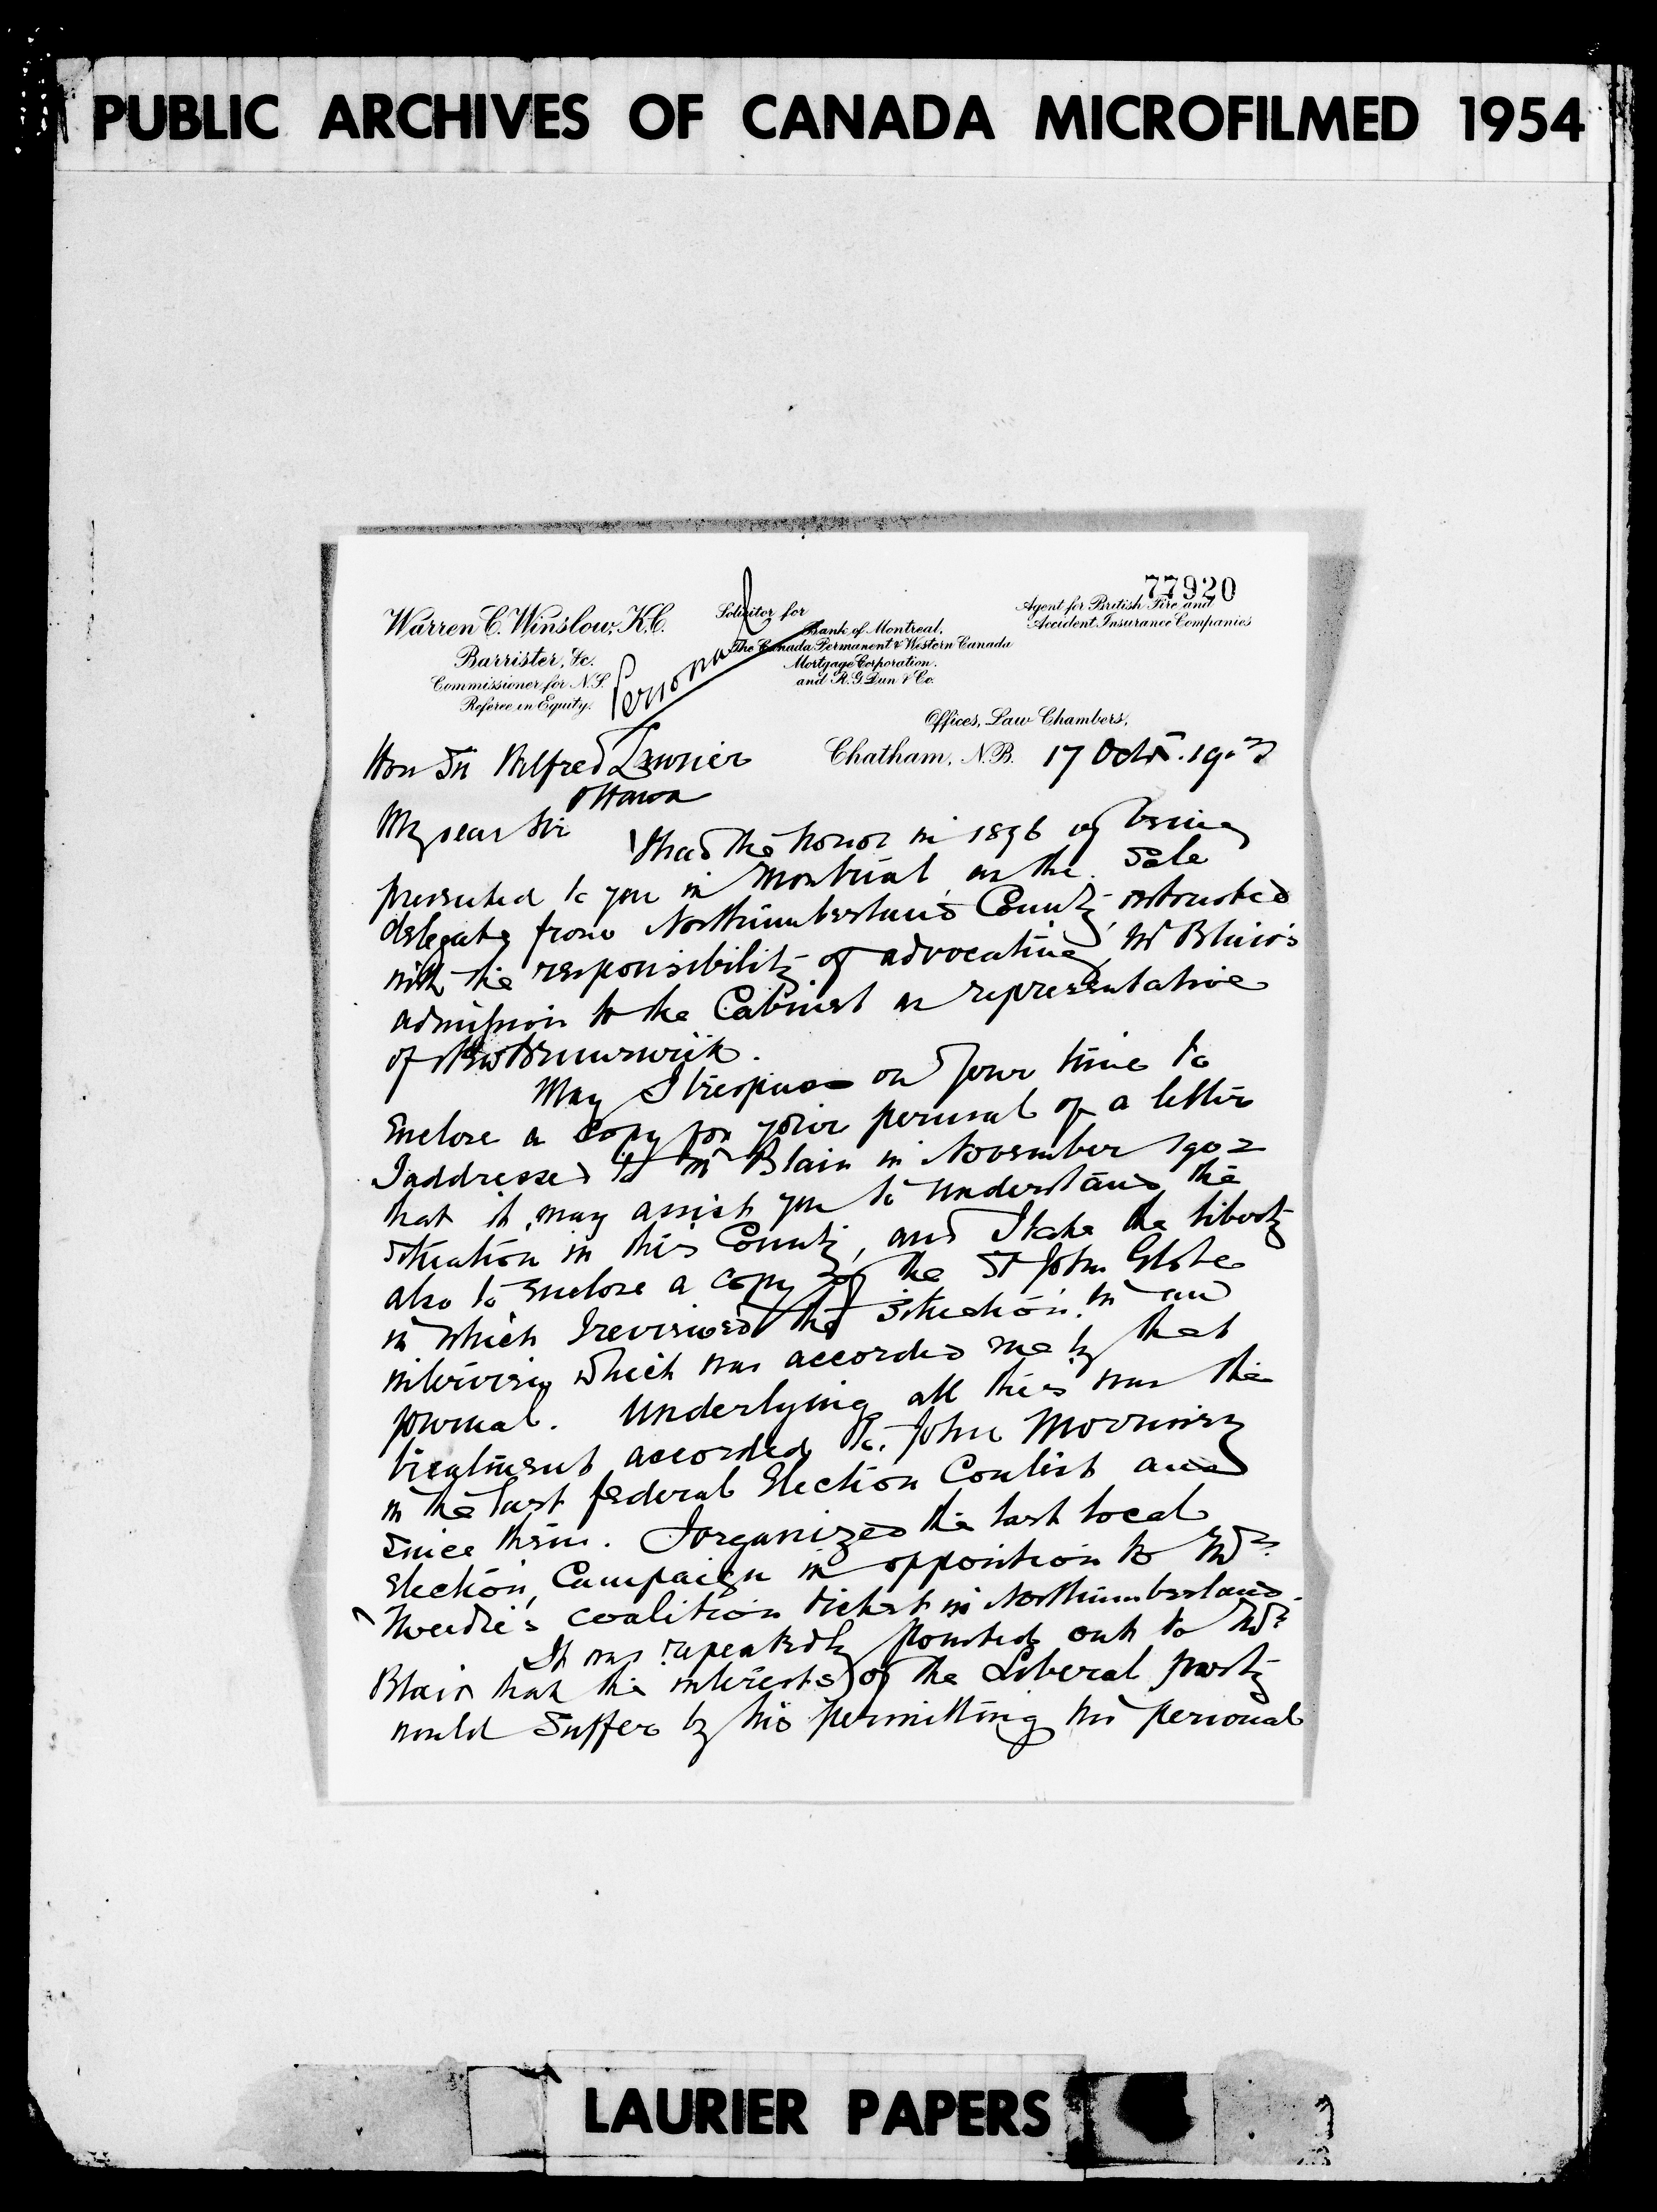 PUBLIC ARCHIVES OF CANADA MICROFILMED 1954
77920
Warren C. Winslow, K.C.
Barrister, &c.
Commissioner for N.S.
Referee in Equity.
Personal
Solicitor for
Bank of Montreal,
The Canada Permanent & Western Canada
Mortgage Corporation.
and R. G. Dun & Co.
Agent for British Fire and
Accident Insurance Companies
Offices, Law Chambers,
Chatham, N.B. 17 Octr. 1903
Hon Sir Wilfred Laurier
Ottawa
My dear Sir
I had the honor in 1896 of being
presented to you in Montreal, as the sole
delegate from Northumberland County, entrusted
with the responsibility of advocating Mr Blair's
admission to the Cabinet as representative
of New Brunswick.
May I trespass on your time to
enclose a copy for your perusal of a letter
I addressed to Mr Blair in November 1902
that it may assist you to understand the
situation in this County, and I take the liberty
also to enclose a copy of the St John Globe
in which I reviewed the situation in an
interview which was accorded me by that
journal. Underlying all this was the
treatment accorded to John Morrissy
in the last federal Election Contest and
since then. I organized the last local
Election Campaign in opposition to Mr
Tweedie's coalition ticket in Northumberland.
It was repeatedly pointed out to Mr
Blair that the interests of the Liberal party
would suffer by his permitting his personal
LAURIER PAPERS